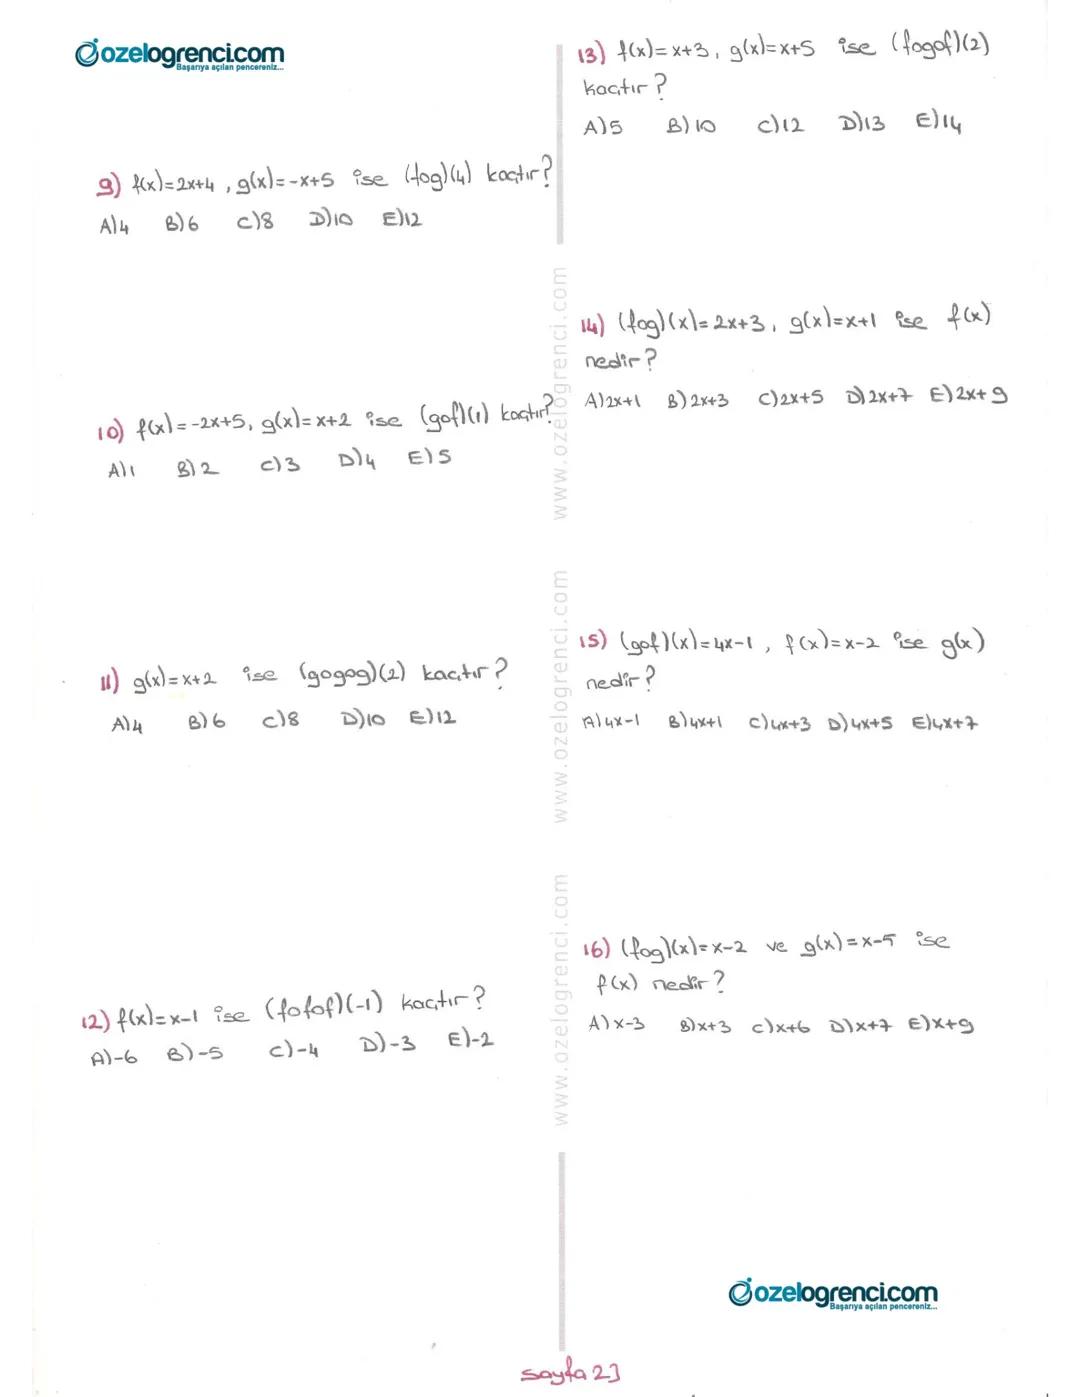 ozelogrenci.com
Başarıya açılan pencereniz...
9) f(x)=2x+4 , g(x)=-x+5 ise (fog)(4) kaçtır?
A)4 B)6 C)8 D)10 E)12
10) f(x)=-2x+5, g(x)=x+2 ise (gof)(1) kaçtır?
A)1 B)2 C)3 D)4 E)5
11) g(x)=x+2 ise (gogog)(2) kaçtır?
A)4 B)6 C)8 D)10 E)12
12) f(x)=x-1 ise (fofof)(-1) kaçtır?
A)-6 B)-5 C)-4 D)-3 E)-2
www.ozelogrenci.com
www.ozelogrenci.com
www.ozelogrenci.com
13) f(x)=x+3, g(x)=x+5 ise (fogof)(2)
kaçtır?
A)5 B)10 C)12 D)13 E)14
14) (fog)(x)=2x+3, g(x)=x+1 ise f(x)
nedir?
A)2x+1 B)2x+3 C)2x+5 D)2x+7 E)2x+9
15) (gof)(x)=4x-1, f(x)=x-2 ise g(x)
nedir?
A)4x-1 B)4x+1 C)4x+3 D)4x+5 E)4x+7
16) (fog)(x)=x-2 ve g(x)=x-5 ise
f(x) nedir?
A)x-3 B)x+3 C)x+6 D)x+7 E)x+9
ozelogrenci.com
Başarıya açılan pencereniz...
sayfa 23